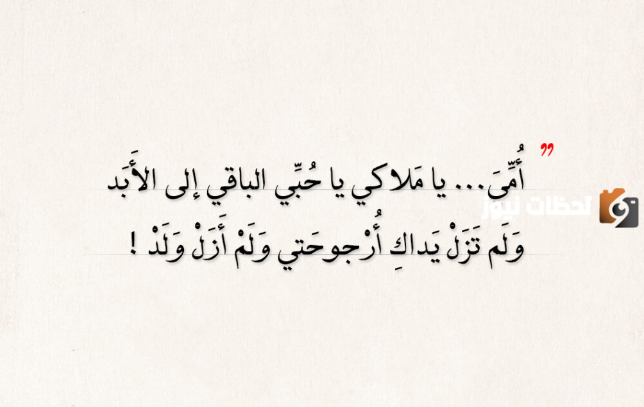 ”
أُمِّىَ... يا مَلاكي يا حُبِّي الباقي إلى الأَبَد
وَلَم تَزَلْ يَداكِ أُرْجوحَتي وَلَمْ أَزَلْ وَلَدْ !
لحظات نيوز